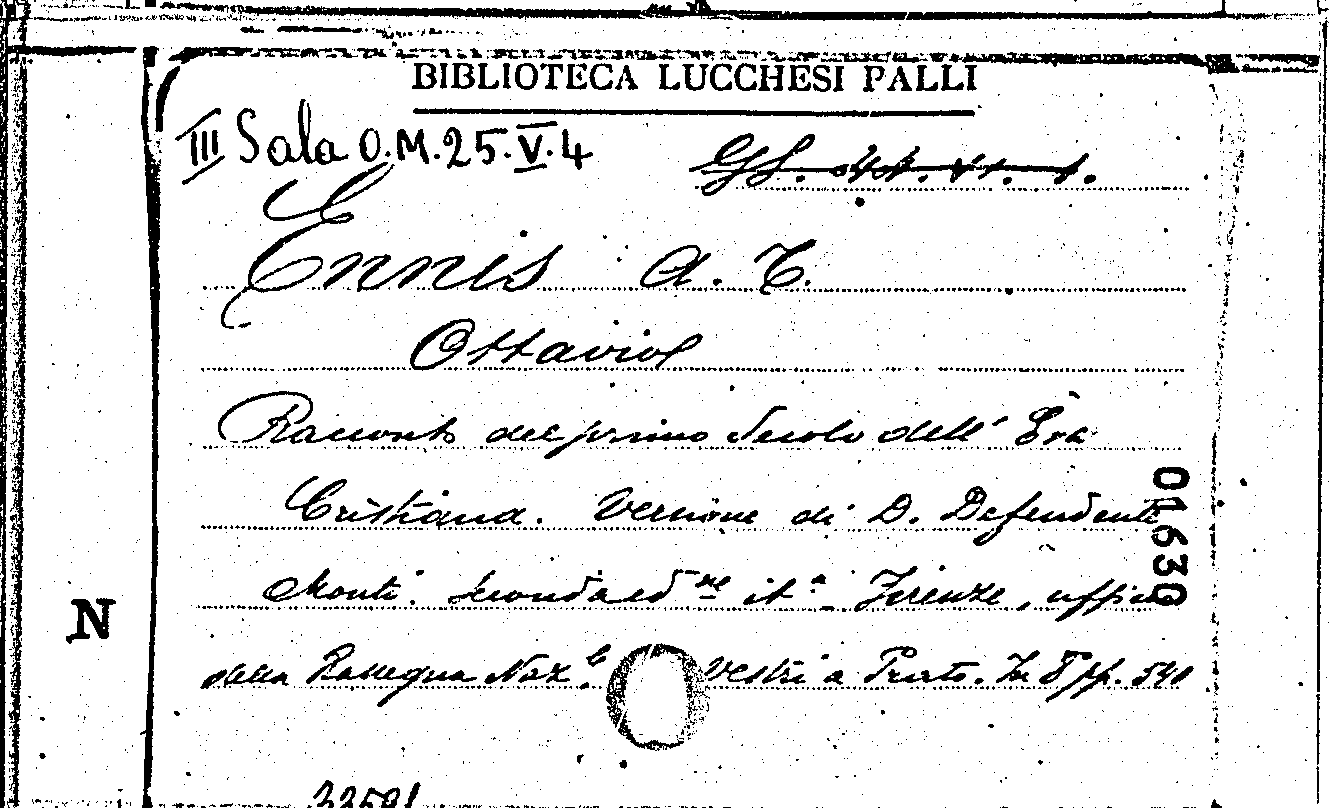 BIBLIOTECA LUCCHESI PALLI
III Sala O.M.25.V.4
Ennis A. T.
Ottavio
Racconto del primo Secolo dell' Era
Cristiana. Versione di D. Defendente
Monti. Seconda ed.ne it.a Firenze, uffic
della Rassegna Naz.le vestri a Prato. In 8 pp. 540
01630
N
32591